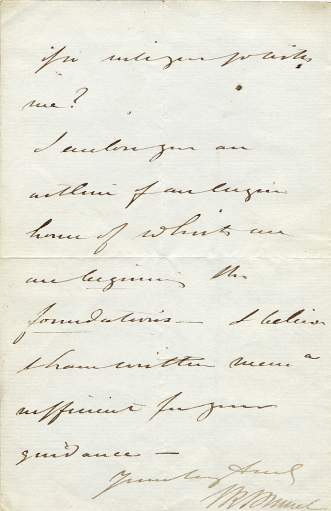 if so will you
me?
I enclose you an
outline of an engine
house of which we
are beginning the
foundations — I believe
I have written a
sufficient for your
guidance —
Yours very truly
I K Brunel